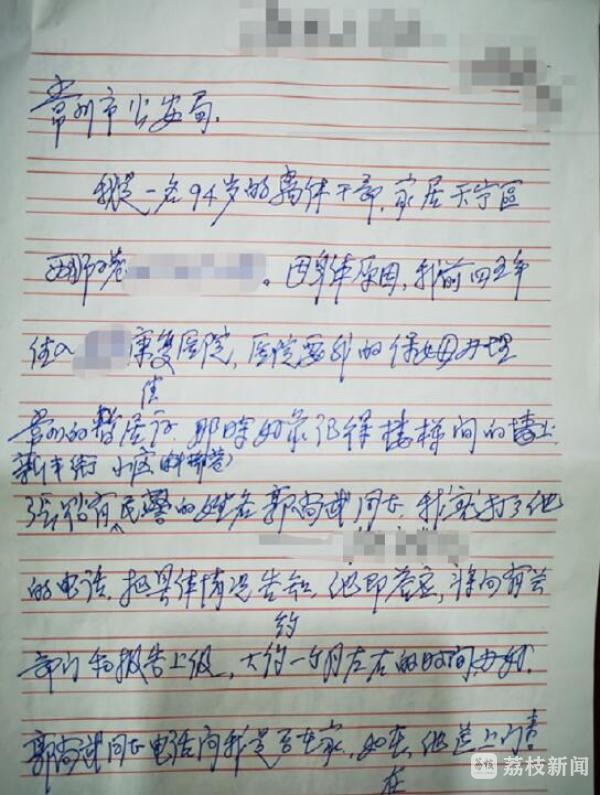 常州市公安局.
我是一名94岁的离休干部,家居天宁区
。因身体原因,我前四五年
住入 康复医院,医院要我的保姆办理
住
常州的暂居证.那时好象记得楼梯间的墙上
新丰街小区
张贴有民警的姓名郭尚武同志,我就打了他
的电话,把具体情况告知,他即答应,将向有关
约
部门和报告上级,大约一个月左右的时间,
郭尚武同志电话问我是否在家,如在,他送上门
在
荔枝新闻